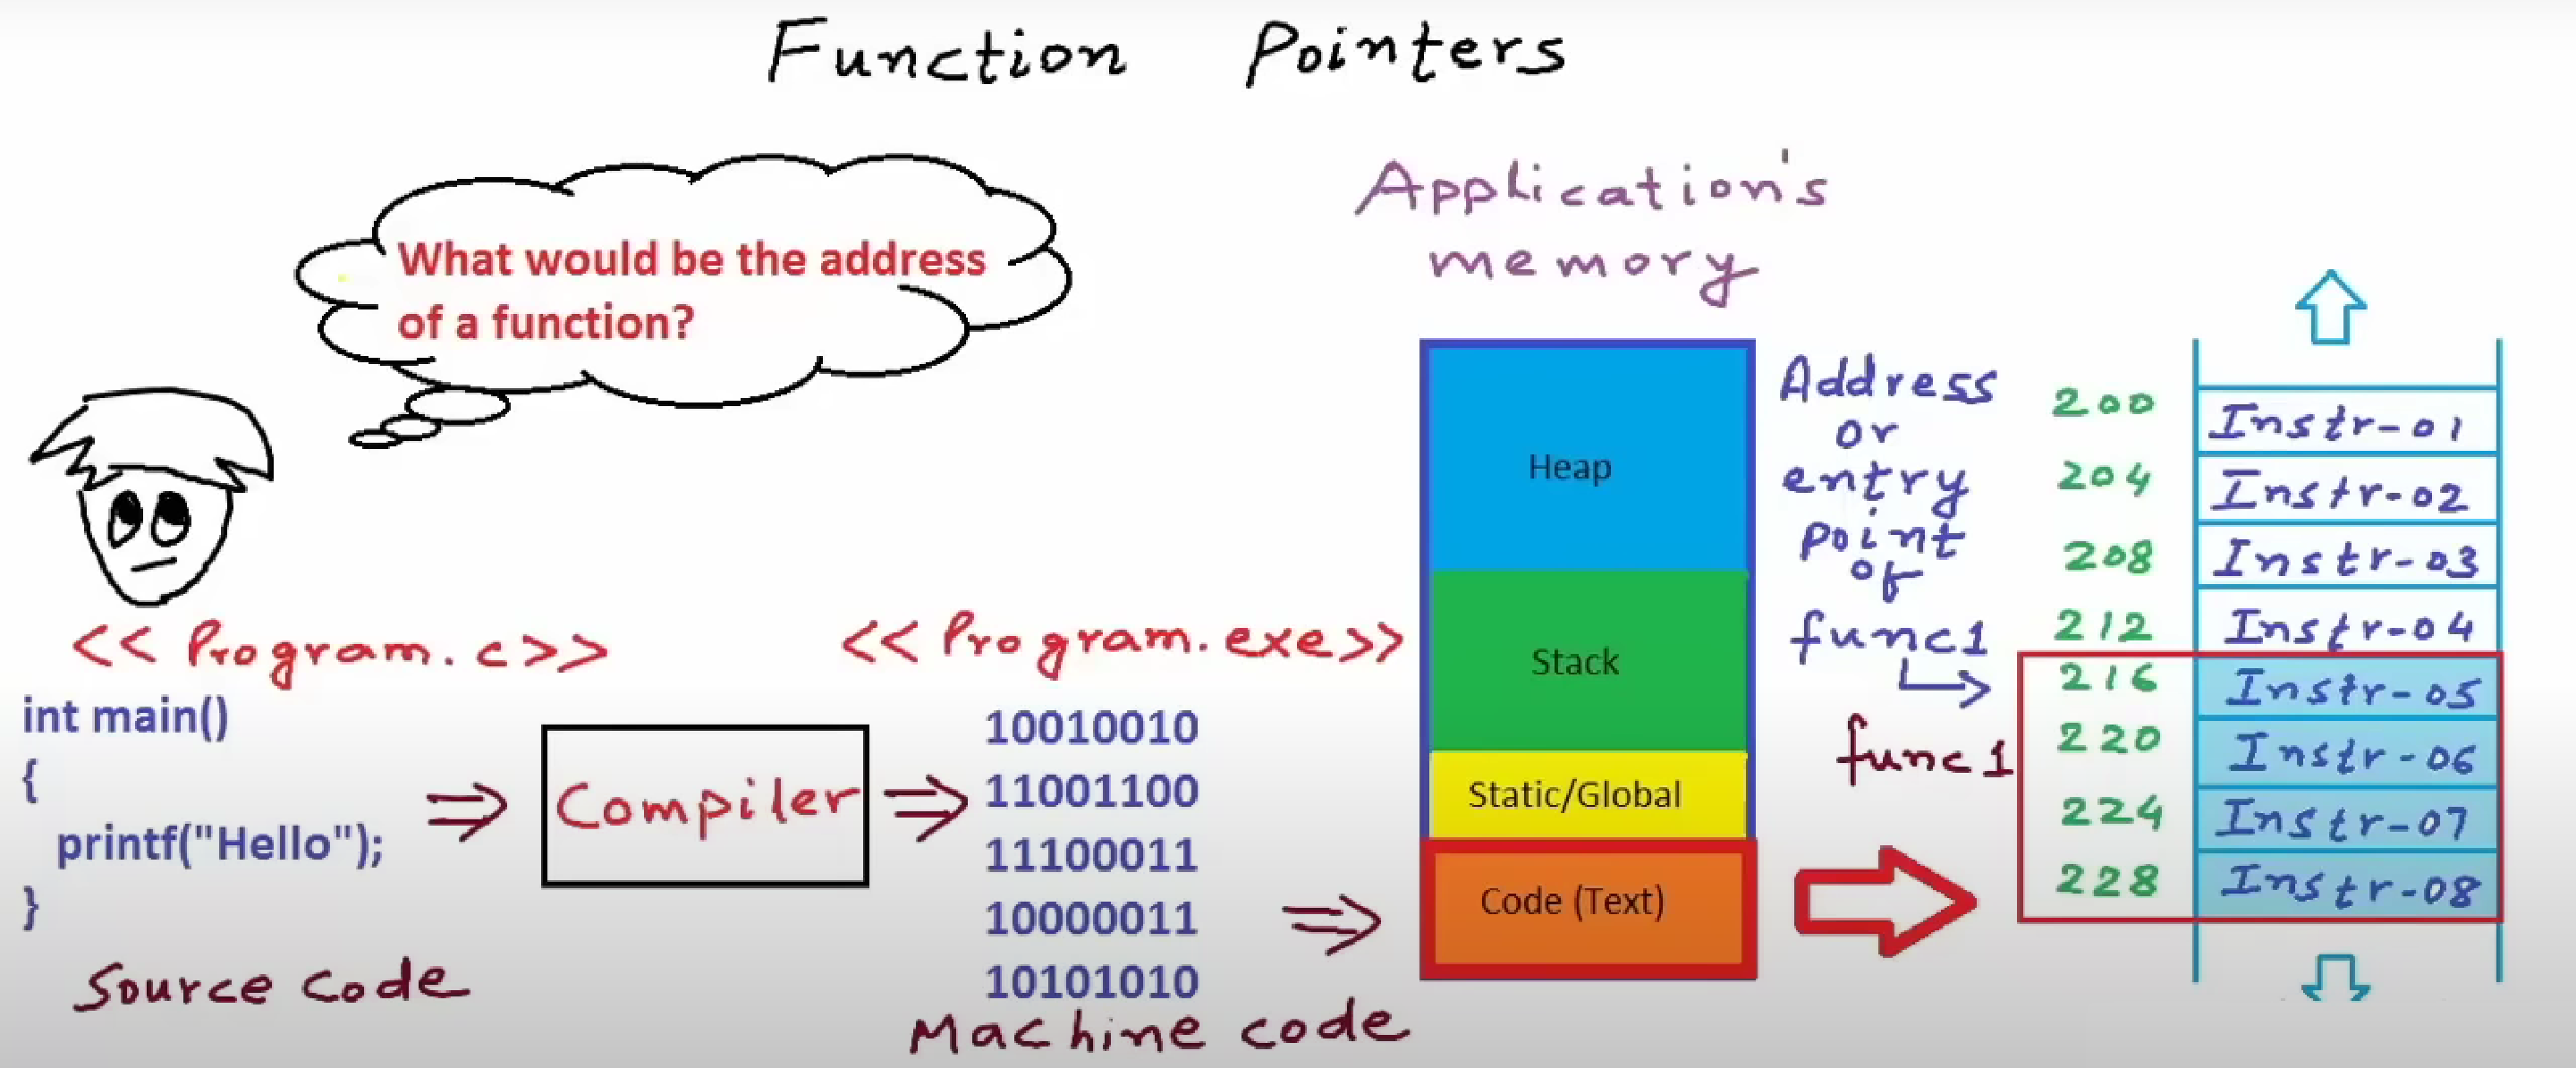 Function Pointers
What would be the address
of a function?
Application's
memory
<< Program.c>>
int main()
{
printf("Hello");
}
Source code
Compiler
<< Program.exe>>
10010010
11001100
11100011
10000011
10101010
Machine code
Heap
Stack
Static/Global
Code (Text)
Address
or
entry
point
of
func1
func1
200 Instr-01
204 Instr-02
208 Instr-03
212 Instr-04
216 Instr-05
220 Instr-06
224 Instr-07
228 Instr-08